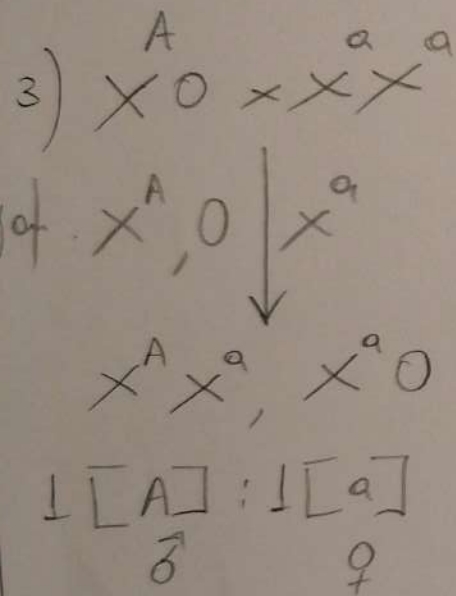 3) XᴬO × XᵃXᵃ
Xᴬ, O Xᵃ
XᴬXᵃ, XᵃO
1 [A] : 1 [a]
♂ ♀